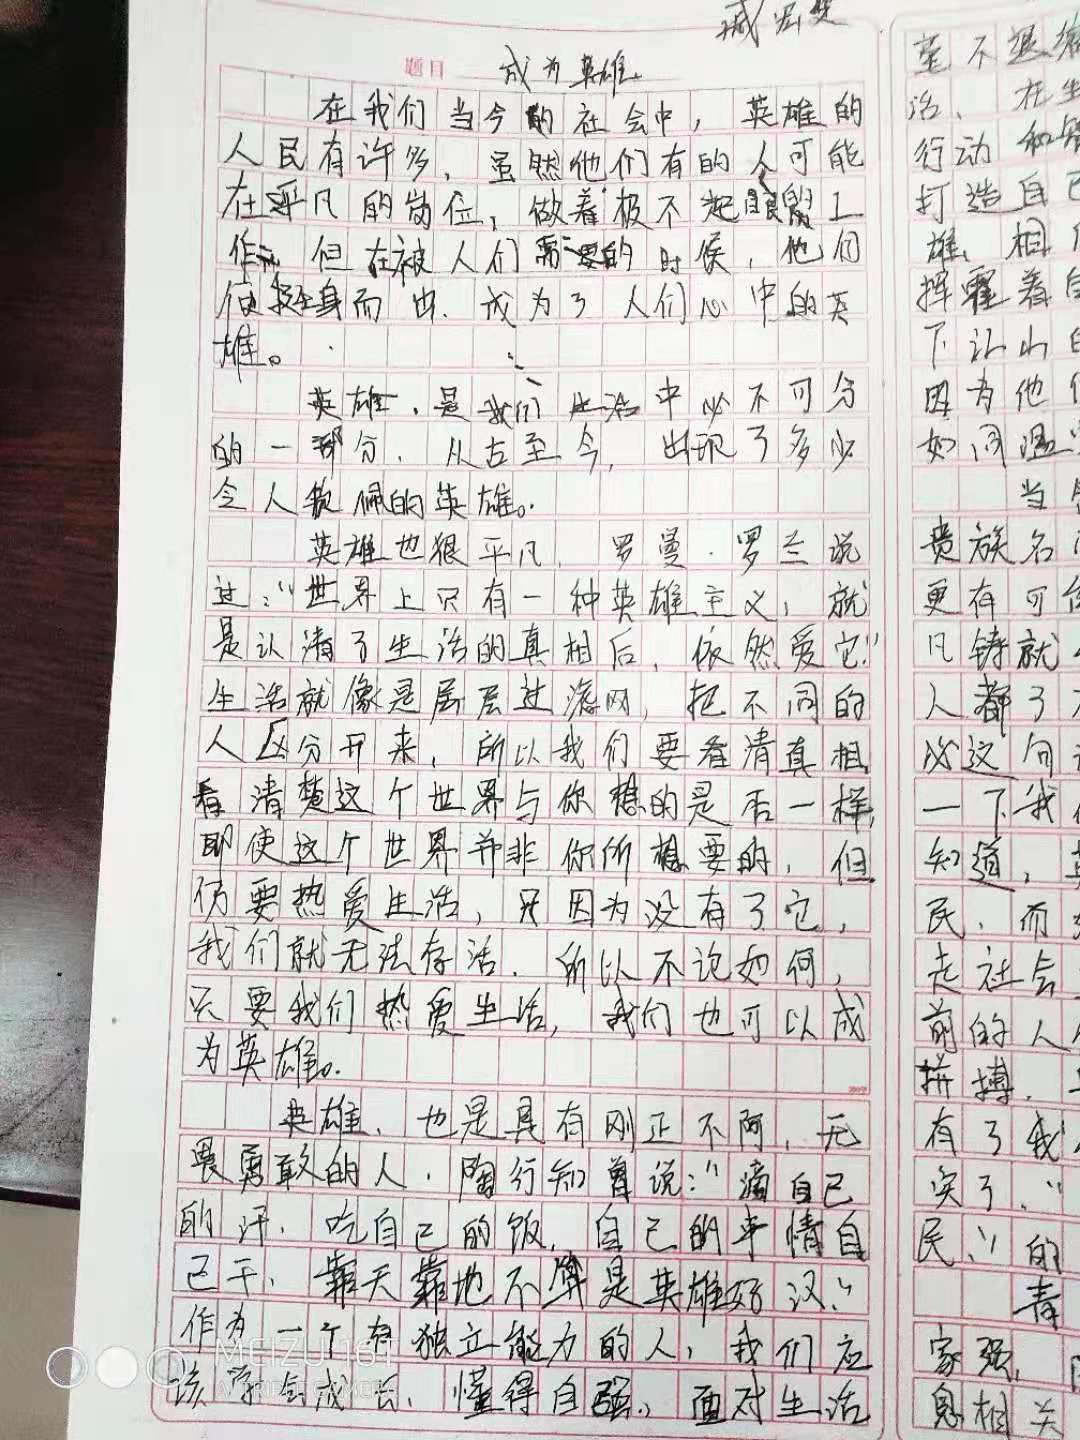 题目 成为英雄。
在我们当今的社会中，英雄的
人民有许多，虽然他们有的人可能
在平凡的岗位，做着极不起眼的工
作，但在被人们需要的时候，他们
便挺身而出，成为了人们心中的英
雄。
英雄，是我们生活中必不可分
的一部分，从古至今，出现了多少
令人钦佩的英雄。
英雄也狠平凡，罗曼·罗兰说
过：“世界上只有一种英雄主义，就
是认清了生活的真相后，依然爱它”
生活就像是层层过滤网，把不同的
人区分开来，所以我们要看清真相
看清楚这个世界与你想的是否一样，
即使这个世界并非你所想要的，但
仍要热爱生活，只因为没有了它，
我们就无法存活，所以不论如何，
只要我们热爱生活，我们也可以成
为英雄。
英雄，也是具有刚正不阿，无
畏勇敢的人，陶行知曾说：“滴自己
的汗，吃自己的饭，自己的事情自
己干，靠天靠地不算是英雄好汉”
作为一个有独立能力的人，我们应
该学会成长，懂得自强，面对生活
MEIZU 16T
AI TRIPLE CAMERA
毫不退缩
活，在生
行动和
打造自己
雄，相
挥霍着自
下让山的
因为他们
如同温
当
贵族名
更有可
凡铸就
人都了
必这句
一下我
知道，英
民，而
走社会
前的人
拼搏，
有了我
实了，“
民”的
青
家强，
息相关